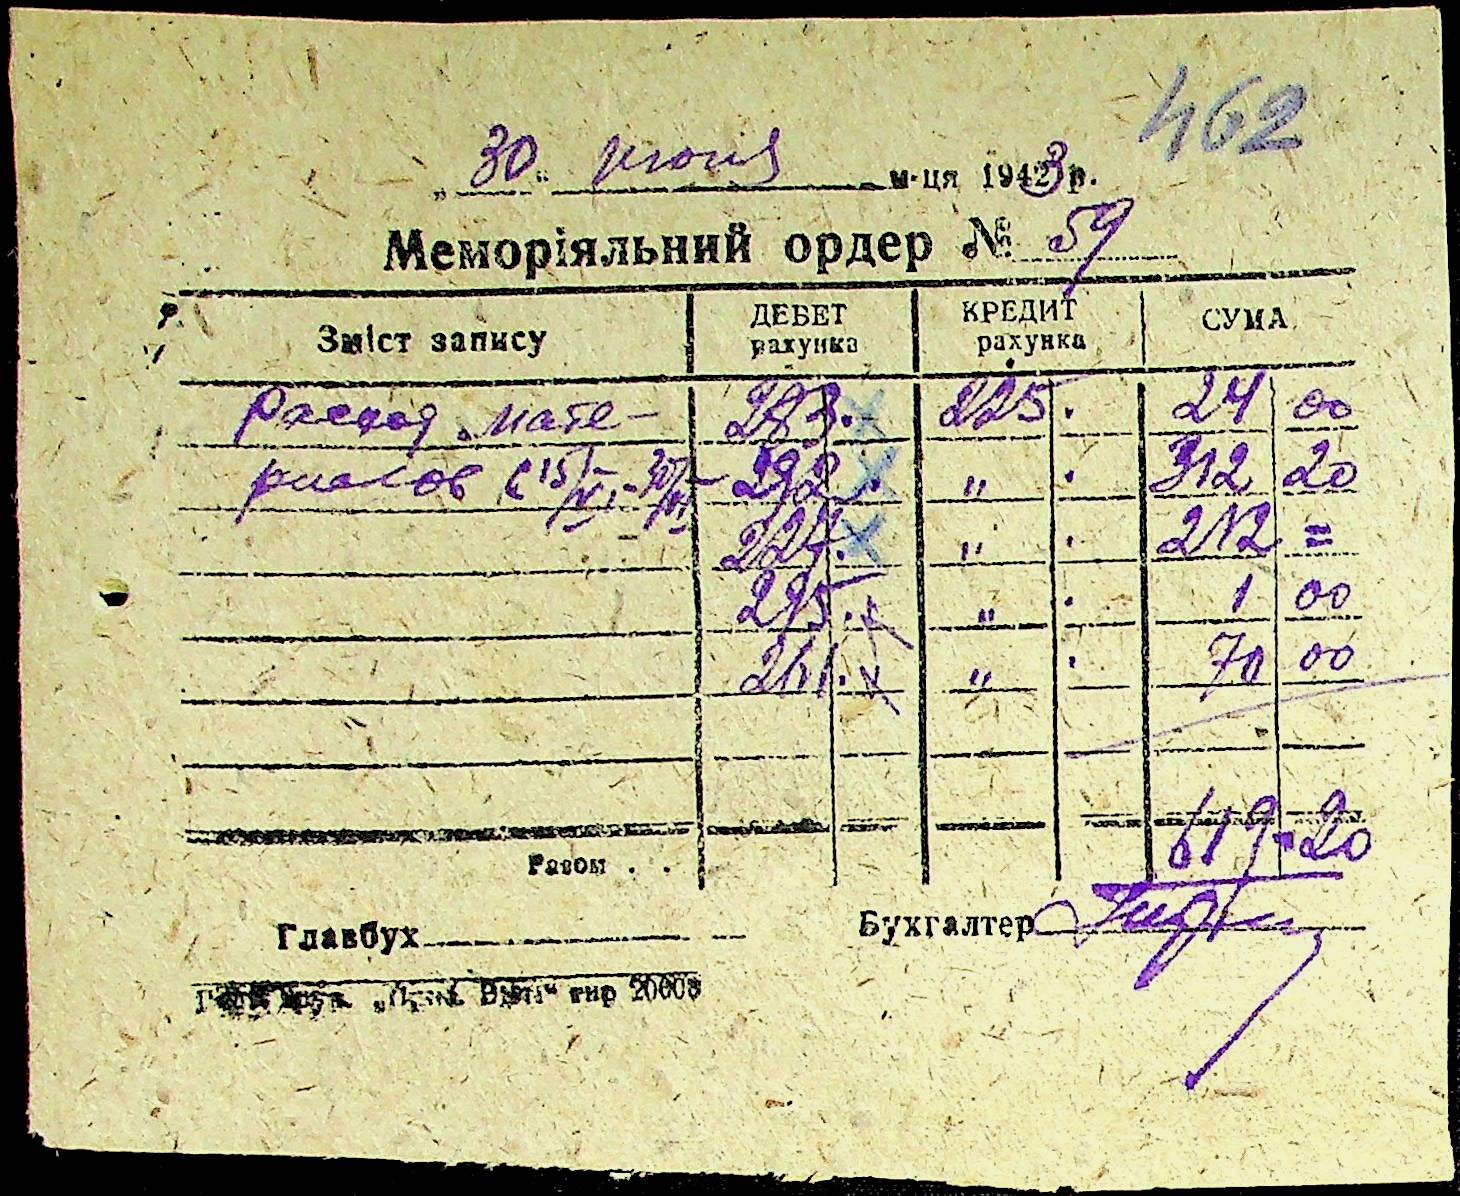 462
„ 30 “ июня м-ця 1943 р.
Меморіяльний ордер № 59
Зміст запису ДЕБЕТ рахунка КРЕДИТ рахунка СУМА
Расход мате- 283. 225. 24 00
риалов с 15/VI-30/VI- 292. „ . 312 20
227. „ . 212 =
295. „ . 1 00
261. „ . 70 00
619-20
Разом . .
Главбух Бухгалтер
тир 20000